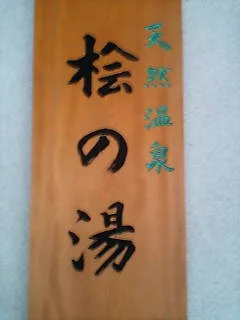 天然温泉
桧の湯